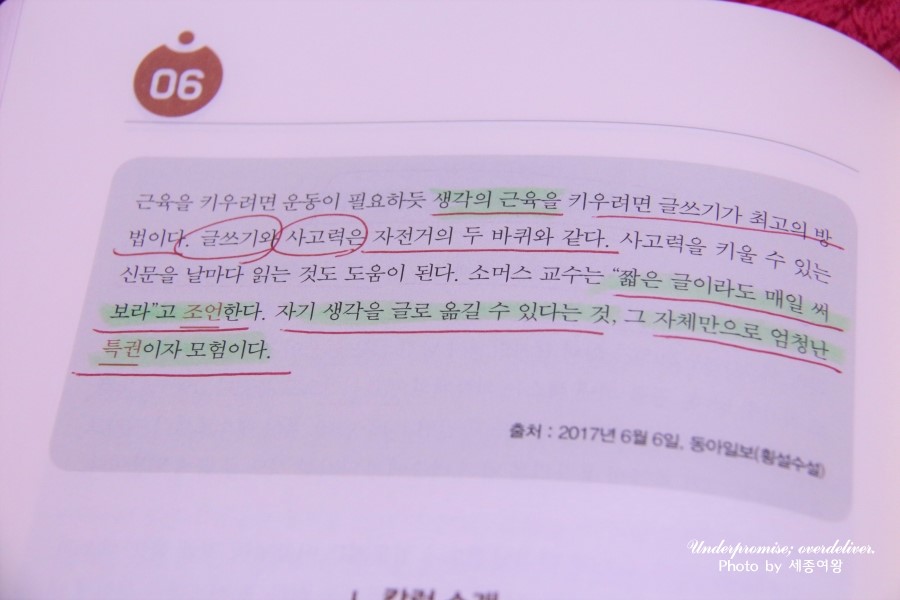 06
근육을 키우려면 운동이 필요하듯 생각의 근육을 키우려면 글쓰기가 최고의 방
법이다. 글쓰기와 사고력은 자전거의 두 바퀴와 같다. 사고력을 키울 수 있는
신문을 날마다 읽는 것도 도움이 된다. 소머스 교수는 “짧은 글이라도 매일 써
보라”고 조언한다. 자기 생각을 글로 옮길 수 있다는 것, 그 자체만으로 엄청난
특권이자 모험이다.
출처 : 2017년 6월 6일, 동아일보(횡설수설)
Underpromise; overdeliver.
Photo by 세종여왕